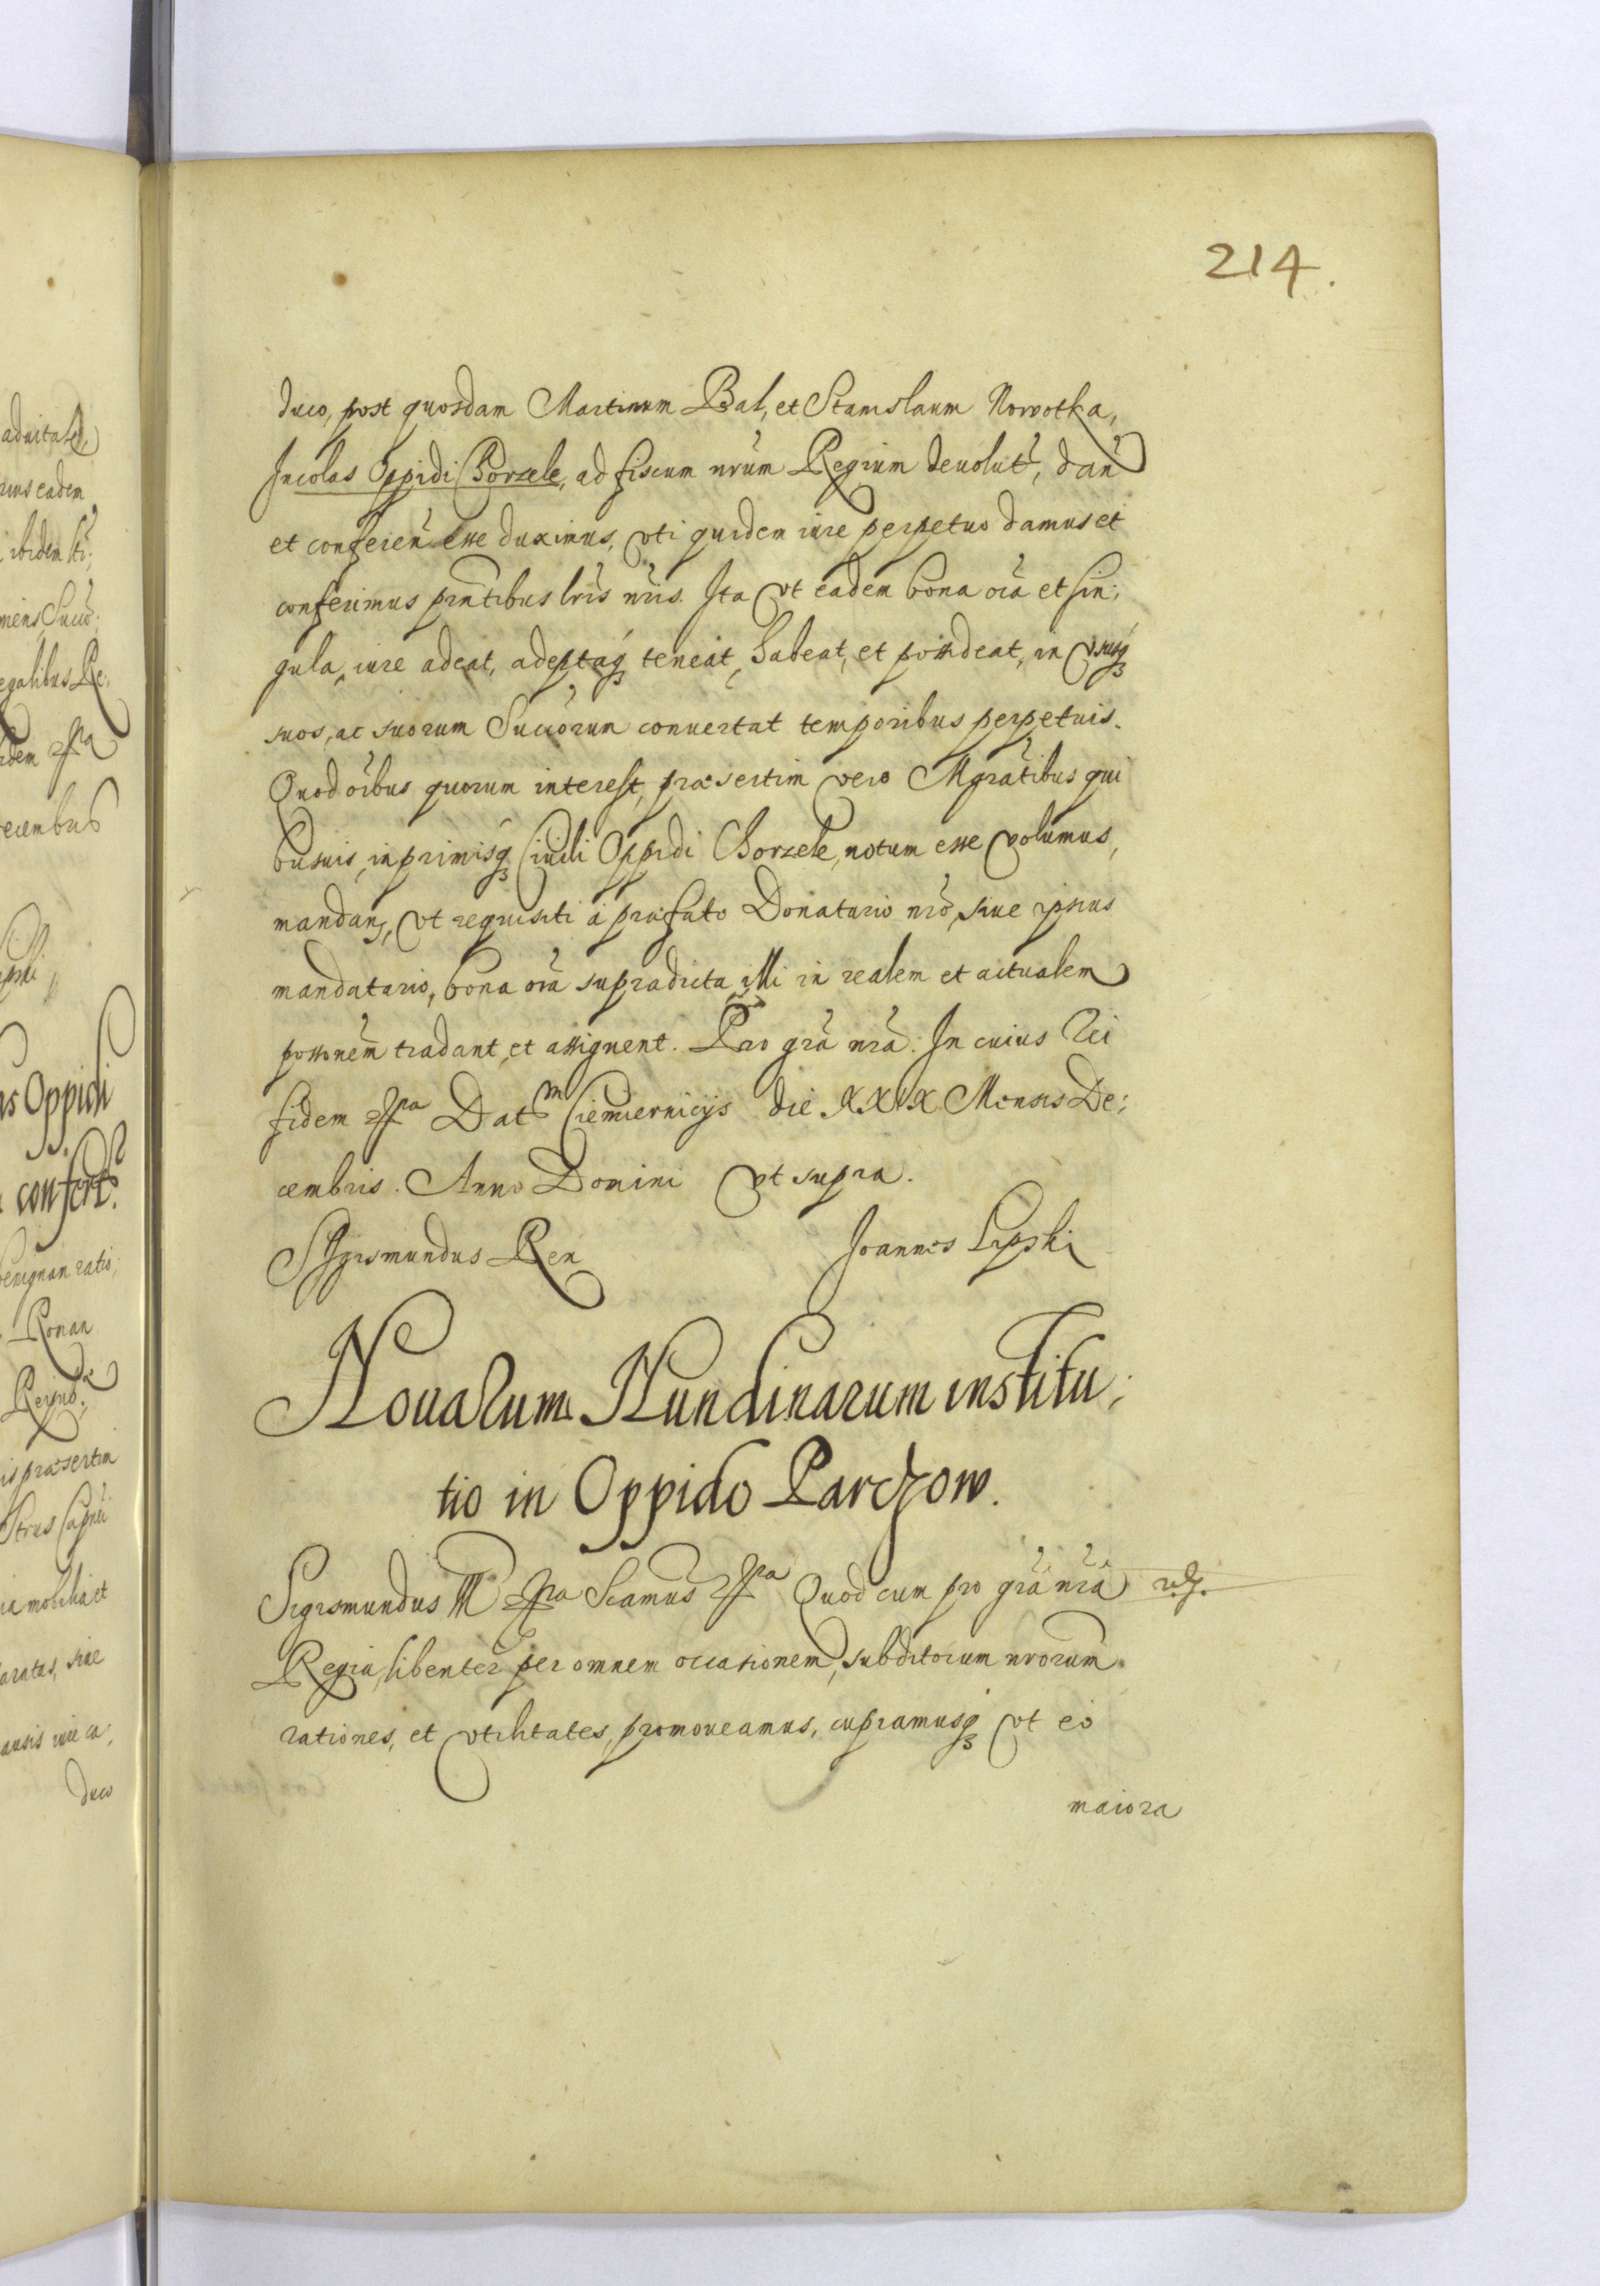 214.
duco, post quosdam Martinum Bal, et Stanislaum Nowotka,
Incolas Oppidi Chorzele, ad fiscum nrum Regium deuolut, dan
et conferen esse duximus, vti quidem iure perpetuo damus et
conferimus pntibus lris nris. Ita vt eadem bona oia et sin;
gula, iure adeat, adeptaq teneat, habeat, et possideat, in vsusq
suos, ac suorum Succorum conuertat temporibus perpetuis.
Quod oibus quorum interest, præsertim vero Mgratibus qui
busuis, inprimisq Ciuili Oppidi Chorzele, notum esse volumus,
mandan, vt requisiti á præfato Donatario nro, siue ipsius
mandatario, bona oia supradicta illi in realem et actualem
possonem tradant, et assignent. Pro gra nra. In cuius rei
fidem Dat Ciemiernicijs die XXIX Mensis De;
cembris. Anno Domini vt supra.
Sigismundus Rex Joannes Lipski
Nouarum Nundinarum institu;
tio in Oppido Parczow.
Sigismundus III Scamus Quod cum pro gra nra
Regia, libenter per omnem occasionem, subditorum nrorum
rationes, et vtilitates, promoueamus, cupiamusq vt eó
maiora
aduitate,
eadem
ibidem
Succo;
egalibus Re;
idem
ecembris
Oppidi
confert.
benignam ratio;
Roman
is præsertim
Strus
mobilia et
aratas, siue
ausis iure ca;
duco